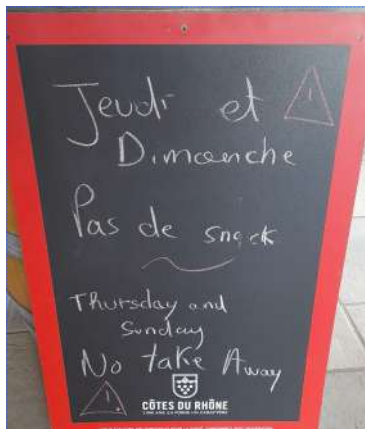 Jeudi et
Dimanche
Pas de snack
Thursday and
Sunday
No take Away
CÔTES DU RHÔNE